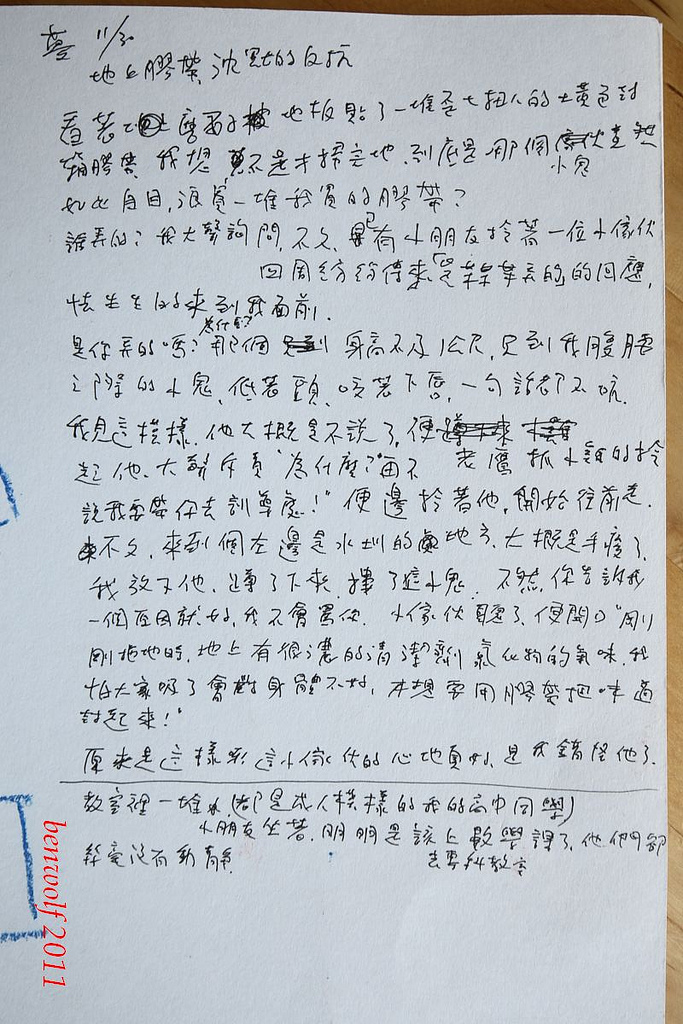 夢 11/30
地上膠帶,沈默的反抗
看著 磨石子 地板貼了一堆歪七扭八的土黃色封
箱膠帶 我想 不是才掃完地,到底是那個傢伙竟然
小鬼
如此盲目,浪費一堆我買的膠帶?
誰弄的?我大聲詢問,不久,已有小朋友拎著一位小傢伙
四周紛紛傳來"是 弄的"的回應,
怯生生的來到我面前.
為什麼?
是你弄的嗎?那個 身高不及1公尺,只到我腹腰
之際的小鬼,低著頭,咬著下唇,一句話都不吭.
我見這模樣,他大概是不說了,便
老鷹抓小雞的拎
起他、大聲斥責"為什麼?再不
說我要帶你去訓導處!"便邊拎著他,開始往前走.
不久,來到個左邊是水圳的 地方,大概是手痠了,
我放下他,蹲了下來,摟了這小鬼. 不然,你告訴我
一個原因就好,我不會罵你. 小傢伙聽了,便開口"剛
剛拖地時,地上有很濃的清潔劑氯化物的氣味,我
怕大家吸了會對身體不好,本想要用膠帶把味道
封起來!"
原來是這樣 這小傢伙的心地真好,是我錯怪他了.
教室裡一堆 (都是成人模樣的我的高中同學)
小朋友坐著,明明是該上數學課了,他們卻
去專科教室
絲毫沒有動靜
benwolf 2011